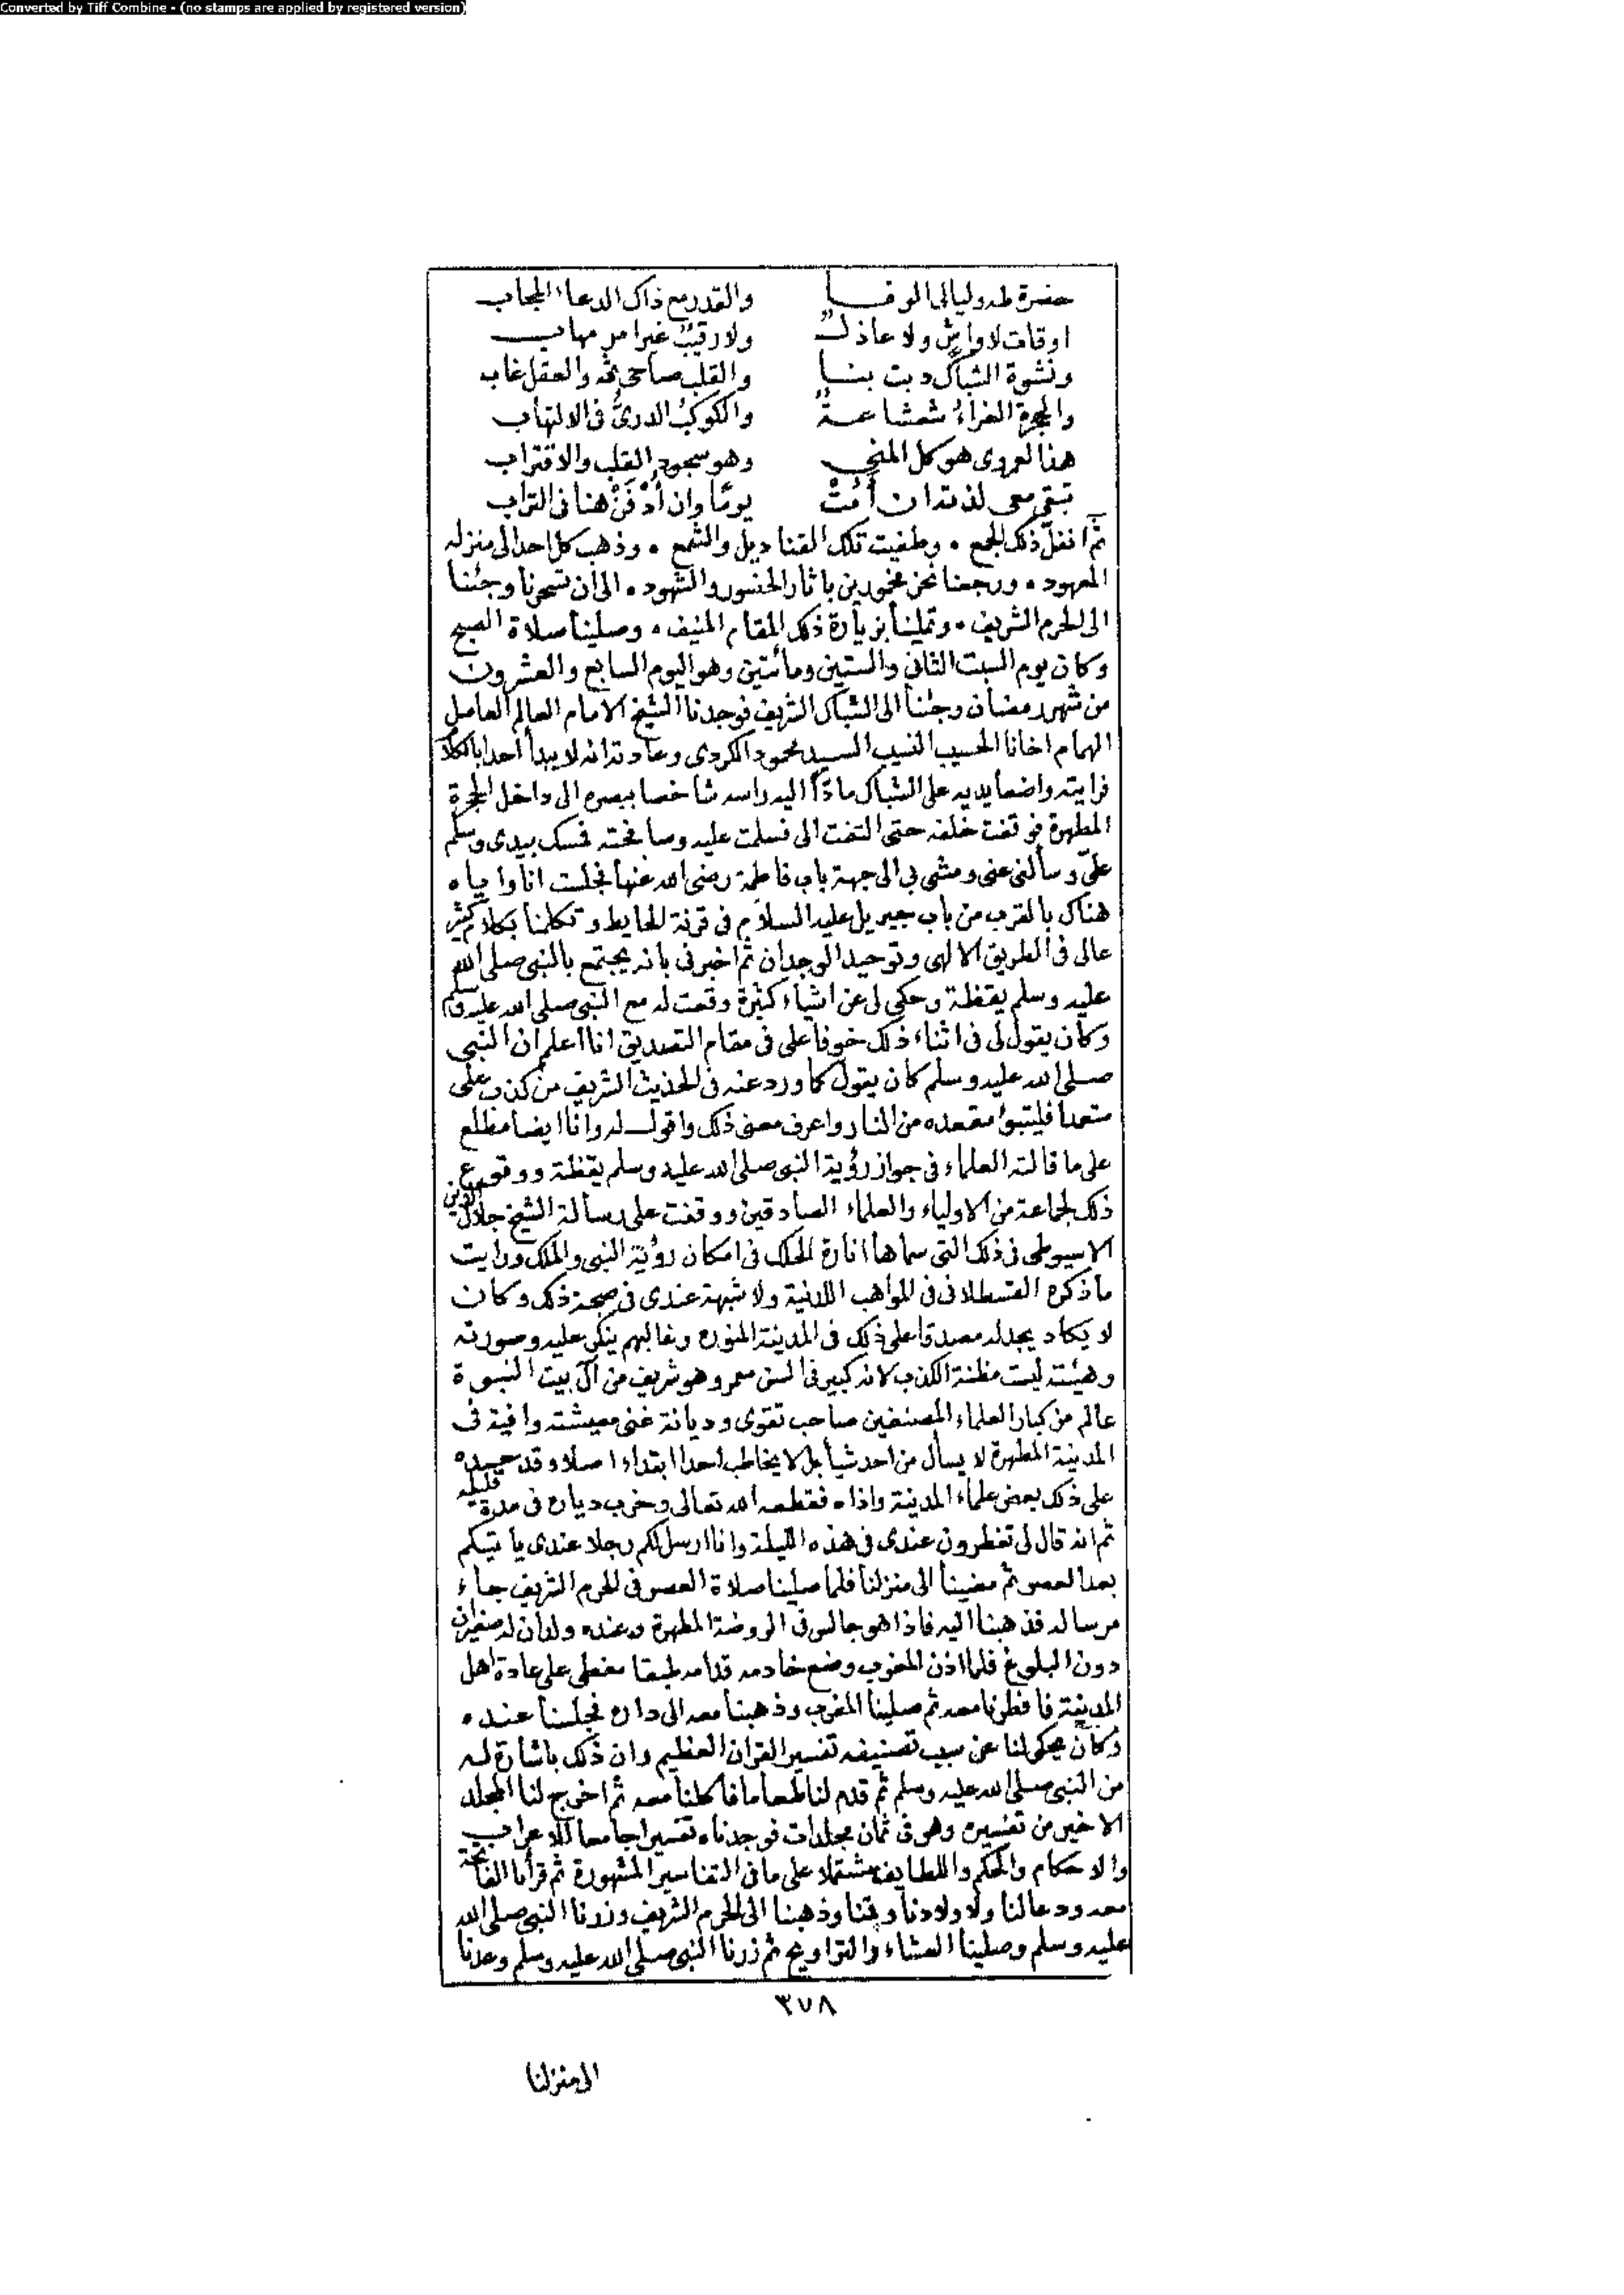 Converted by Tiff Combine - (no stamps are applied by registered version)
حضرة طه وليالى الوفا والقدر مع ذاك الدعاء المجاب
اوقات لاواش ولا عاذل ولا رقيب غير امر مهاب
ونشوة الشباك دبت بنا والقلب صاحى والعقل غاب
والحجرة الغراء شعشاعة والكوكب الدرى فى الالتهاب
هذا لعمرى هو كل المنى وهو سجود القلب والاقتراب
تبقى معى لذته ان أمت يوما وان أدفن هنا فى التراب
ثم انفل ذلك الجمع • وطفيت تلك القناديل والشمع • وذهب كل احد الى منزله
المعهود • ورجعنا نحن مخمورين باثار الحضور والشهود • الى ان تسحرنا وجئنا
الى الحرم الشريف • وتملينا بزيارة ذلك المقام المنيف • وصلينا صلاة الصبح
وكان يوم السبت الثانى والستين ومائتين وهو اليوم السابع والعشرون
من شهر رمضان وجئنا الى الشباك الشريف فوجدنا الشيخ الامام العالم العامل
الهمام اخانا الحسيب النسيب السيد محمود الكردى وعادته انه لا يبدأ احدا بالكلام
فرايته واضعا يديه على الشباك مادّا اليه راسه شاخصا ببصره الى داخل الحجرة
المطهرة فوقفت خلفه حتى التفت الى فسلمت عليه وصافحته فمسك بيدى وسلم
علىّ وسألنى عنى ومشى بى الى جهة باب فاطمة رضى الله عنها فجلست انا واياه
هناك بالقرب من باب جبريل عليه السلام فى قرنة الحايط وتكلمنا بكلام كثير
عالى فى الطريق الالهى وتوحيد الوجدان ثم اخبرنى بانه يجتمع بالنبى صلى الله
عليه وسلم يقظة وحكى لى عن اشياء كثيرة وقعت له مع النبى صلى الله عليه وسلم
وكان يقول لى فى اثناء ذلك خوفا على فى مقام التصديق انا اعلم ان النبى
صلى الله عليه وسلم كان يقول كما ورد عنه فى الحديث الشريف من كذب على
متعمدا فليتبوأ مقعده من النار واعرف معنى ذلك واقول له وانا ايضا مطلع
على ما قالته العلماء فى جواز رؤية النبى صلى الله عليه وسلم يقظة ووقوع
ذلك لجماعة من الاولياء والعلماء الصادقين ووقفت على رسالة الشيخ جلال الدين
الاسيوطى فى ذلك التى سماها انارة الحلك فى امكان رؤية النبى والملك ورايت
ما ذكره القسطلانى فى المواهب اللدنية ولا شبهة عندى فى صحة ذلك وكان
لا يكاد يجد له مصدقا على ذلك فى المدينة المنوره وغالبهم ينكر عليه وصورته
وهيئته ليست مظنة الكذب لانه كبير فى السن معمر وهو شريف من آل بيت النبوة
عالم من كبار العلماء المصنفين صاحب تقوى وديانة غنى معيشته وافية فى
المدينة المطهرة لا يسأل من احد شيأ بل لا يخاطب احدا ابتداء اصلا وقد حسده
على ذلك بعض علماء المدينة واذاه فقطعه الله تعالى وخرب دياره فى مدة قليلة
ثم انه قال لى تفطرون عندى فى هذه الليلة وانا ارسل لكم رجلا عندى ياتيكم
بعد العصر ثم مضينا الى منزلنا فلما صلينا صلاة العصر فى الحرم الشريف جاء
مرساله فذهبنا اليه فاذا هو جالس فى الروضة المطهرة وعنده ولدان له صغيران
دون البلوغ فلما اذن المغرب وضع خادمه قدامه طبقا مغطى على عادة اهل
المدينة فافطرنا معه ثم صلينا المغرب وذهبنا معه الى داره فجلسنا عنده
وكان يحكى لنا عن سبب تصنيفه تفسير القران العظيم وان ذلك باشارة له
من النبى صلى الله عليه وسلم ثم قدم لنا طعاما فاكلنا معه ثم اخرج لنا المجلد
الاخير من تفسيره وهو فى ثمان مجلدات فوجدناه تفسيرا جامعا للاعراب
والاحكام والحكم واللطايف مشتملا على ما فى التفاسير المشهورة ثم قرأنا الفاتحة
معه ودعا لنا ولاولادنا وقمنا وذهبنا الى الحرم الشريف وزرنا النبى صلى الله
عليه وسلم وصلينا العشاء والتراويح ثم زرنا النبى صلى الله عليه وسلم وعدنا
٣٧٨
الى منزلنا